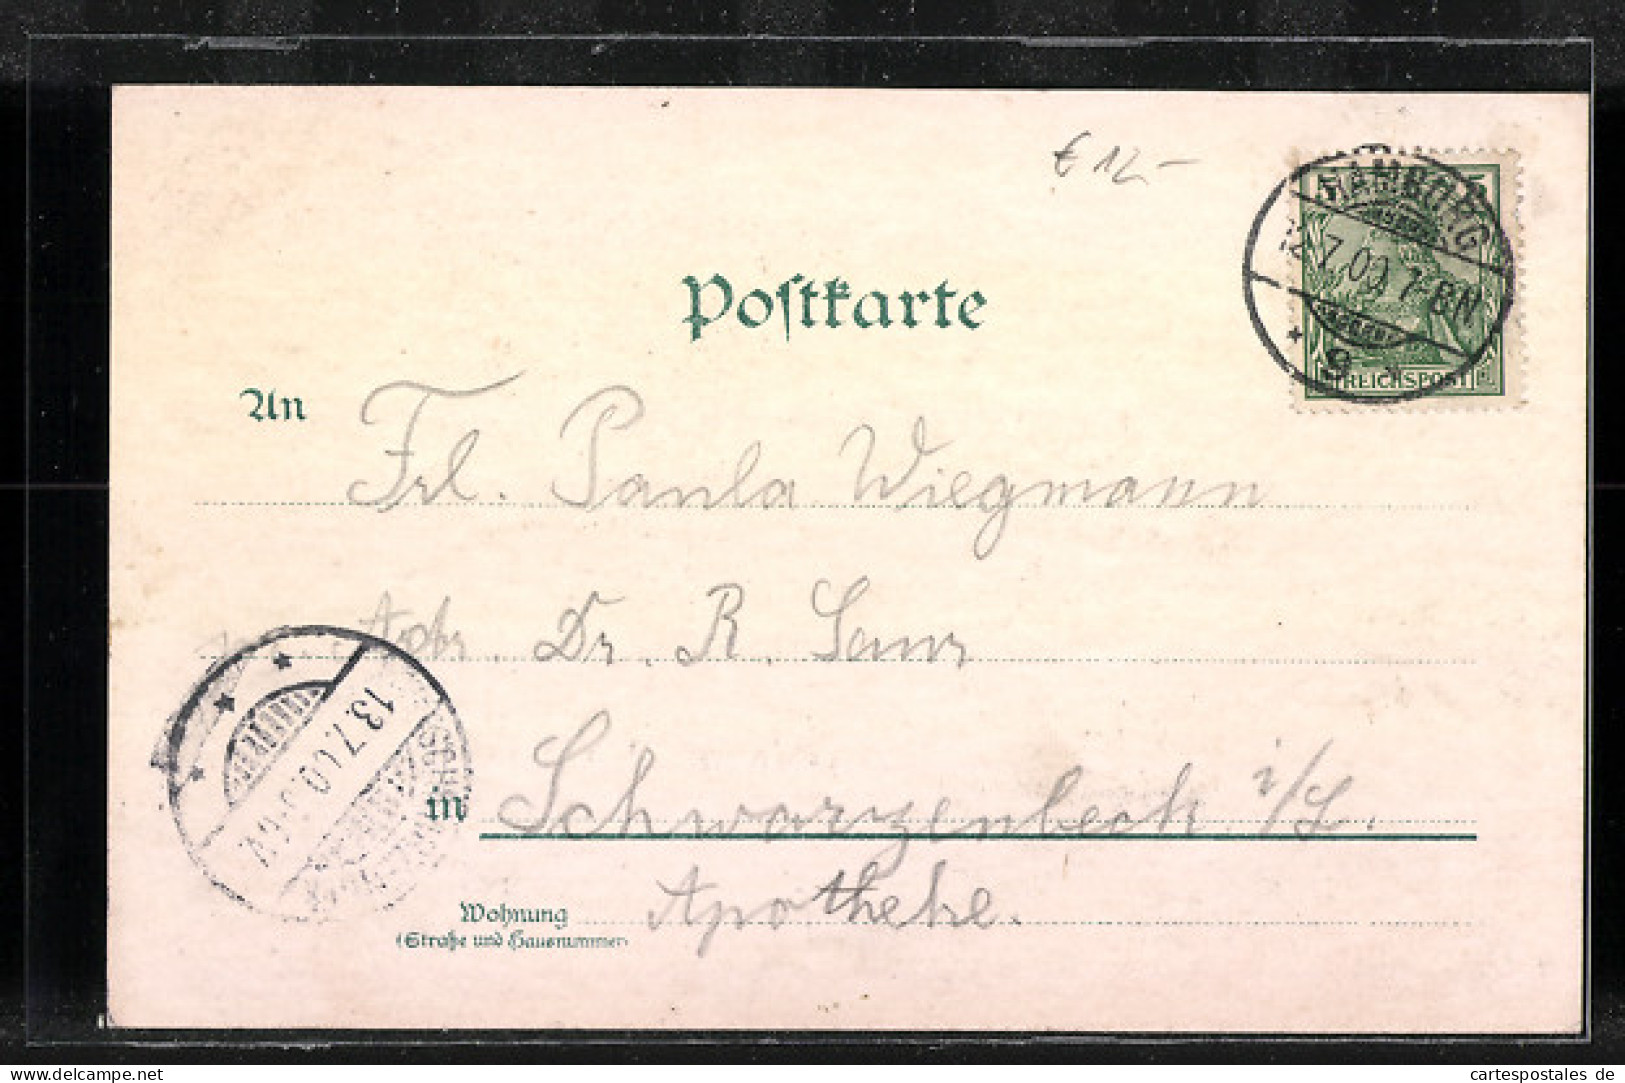 € 12,-
HAMBURG
12.7.00 7-8N
* 9 *
REICHSPOST
Postkarte
An
Frl. Paula Wiegmann
Adr. Dr. R.
13.7.00
in Schwarzenbeck i/L.
Wohnung Apotheke.
(Straße und Hausnummer)
www.delcampe.net
cartespostales de